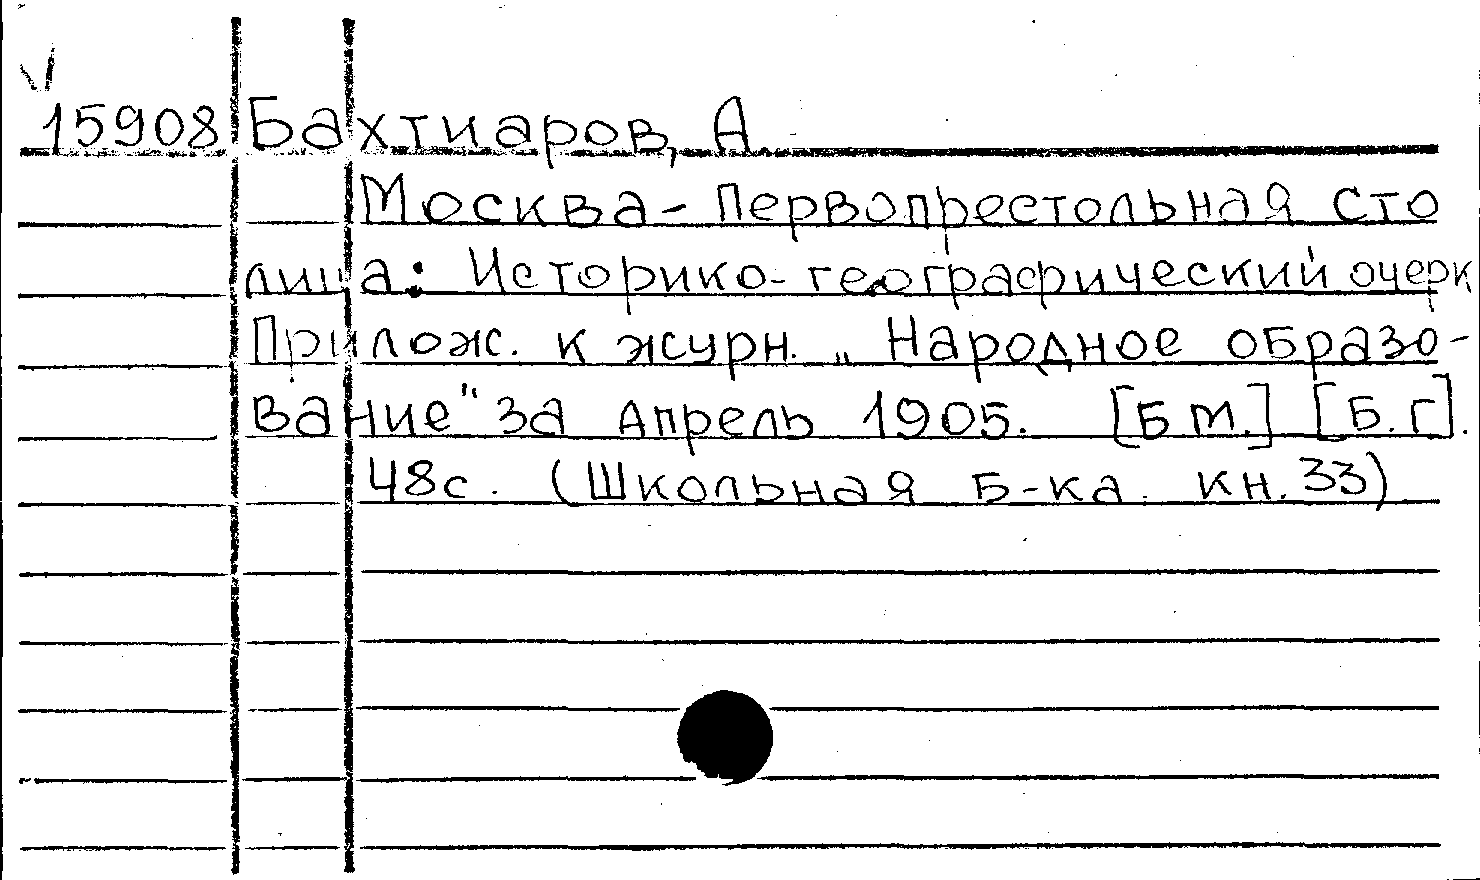 15908 Бахтиаров, А.
Москва - Первопрестольная сто
лица: Историко-географический очерк
Прилож. к журн. „Народное образо-
вание" за Апрель 1905. [Б м.] [Б. г].
48с. (Школьная Б-ка. кн. 33)